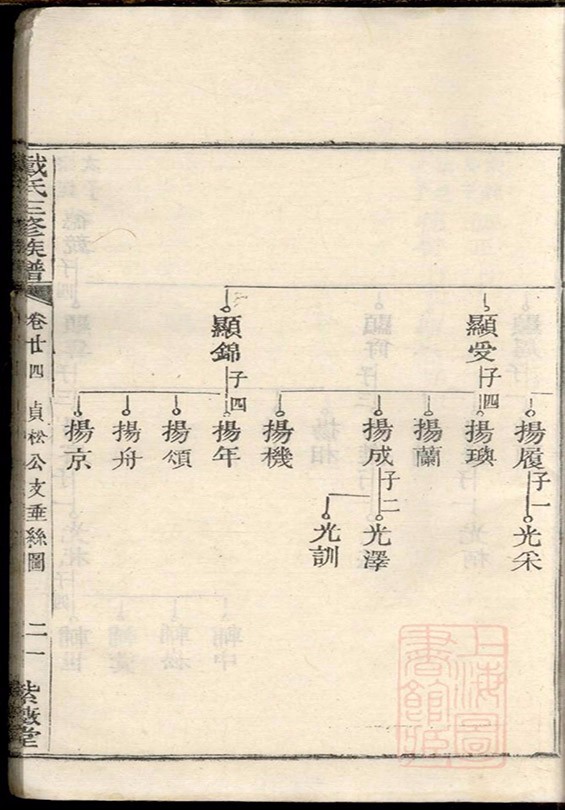 顯受 子四
顯錦 子四
揚履 子一
揚璵
揚蘭
揚成 子二
揚機
揚年
揚頌
揚舟
揚京
光采
光澤
光訓
戴氏三修族譜
卷廿四 貞松公支垂絲圖
二一
上海圖書館藏